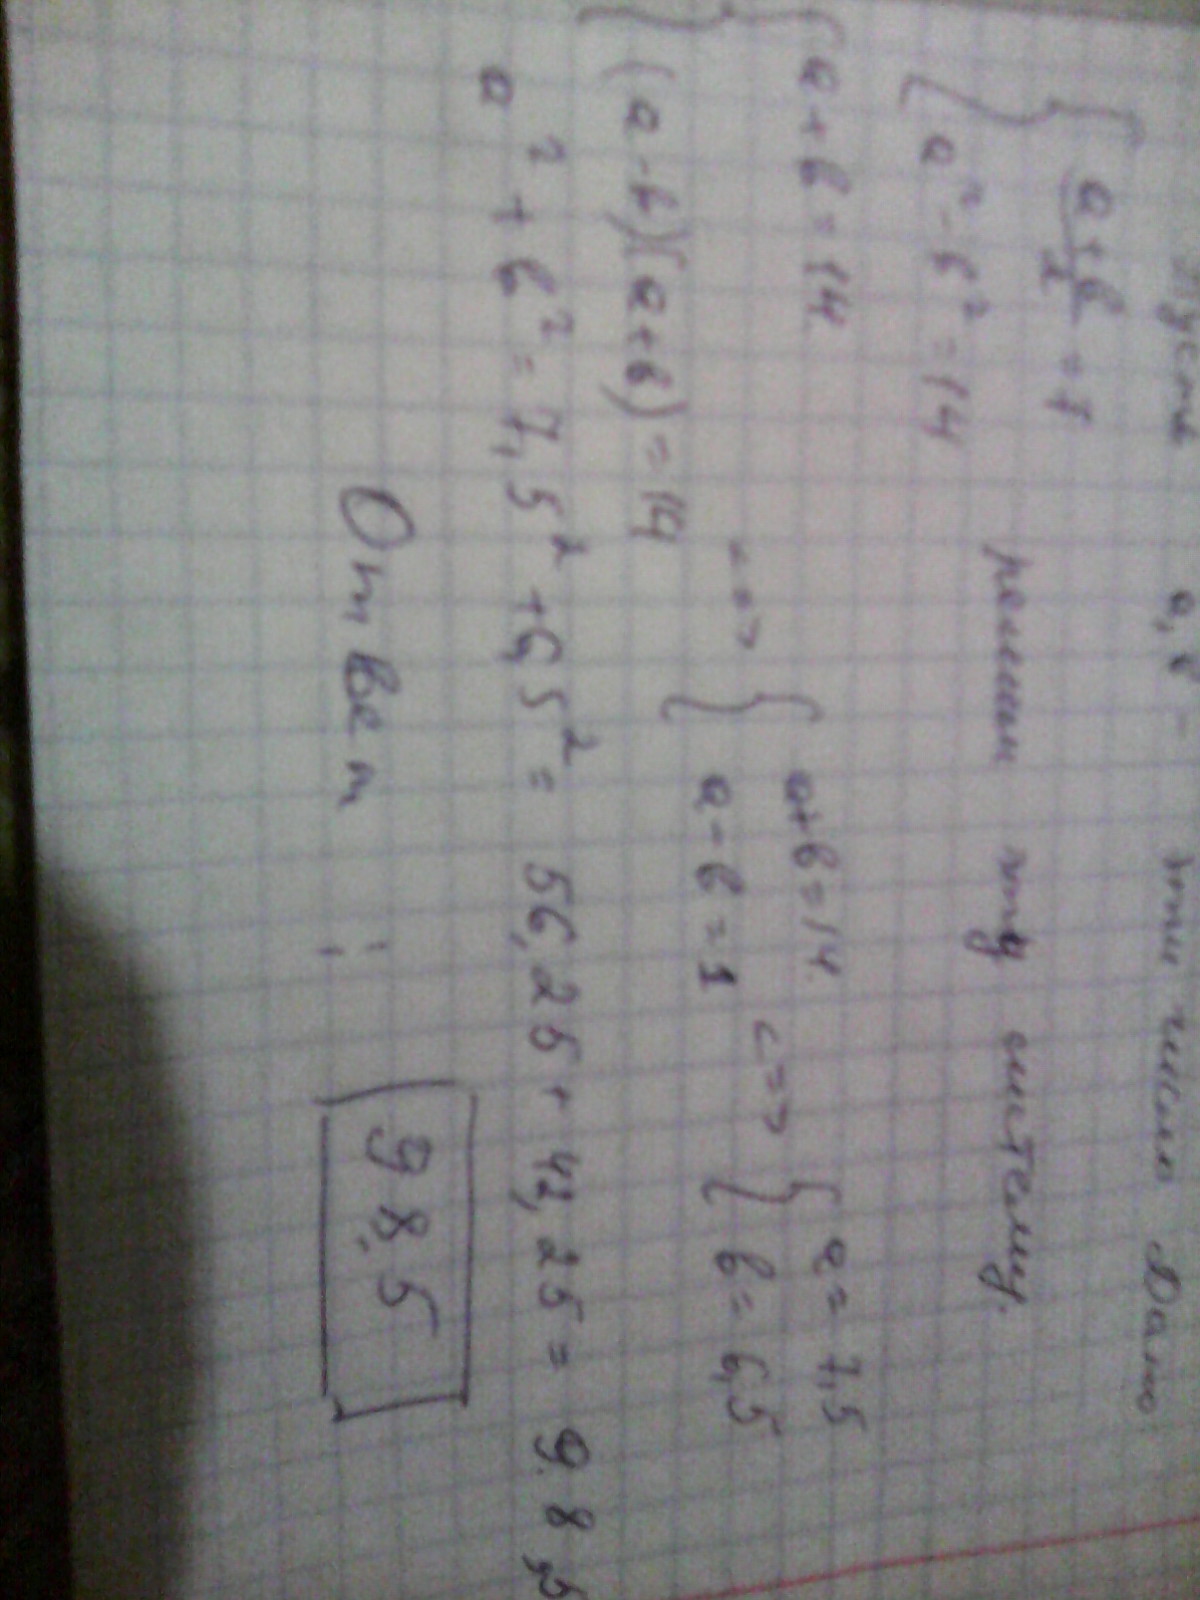 Пусть a, b - эти числа Дано:
{ a+b/2 = 7
{ a² - b² = 14
решим эту систему.
{ a+b=14 <=> { a+b=14 <=> { a=7,5
{ (a-b)(a+b)=14 { a-b=1 { b=6,5
a² + b² = 7,5² + 6,5² = 56,25 + 42,25 = 98,5
Ответ: 98,5